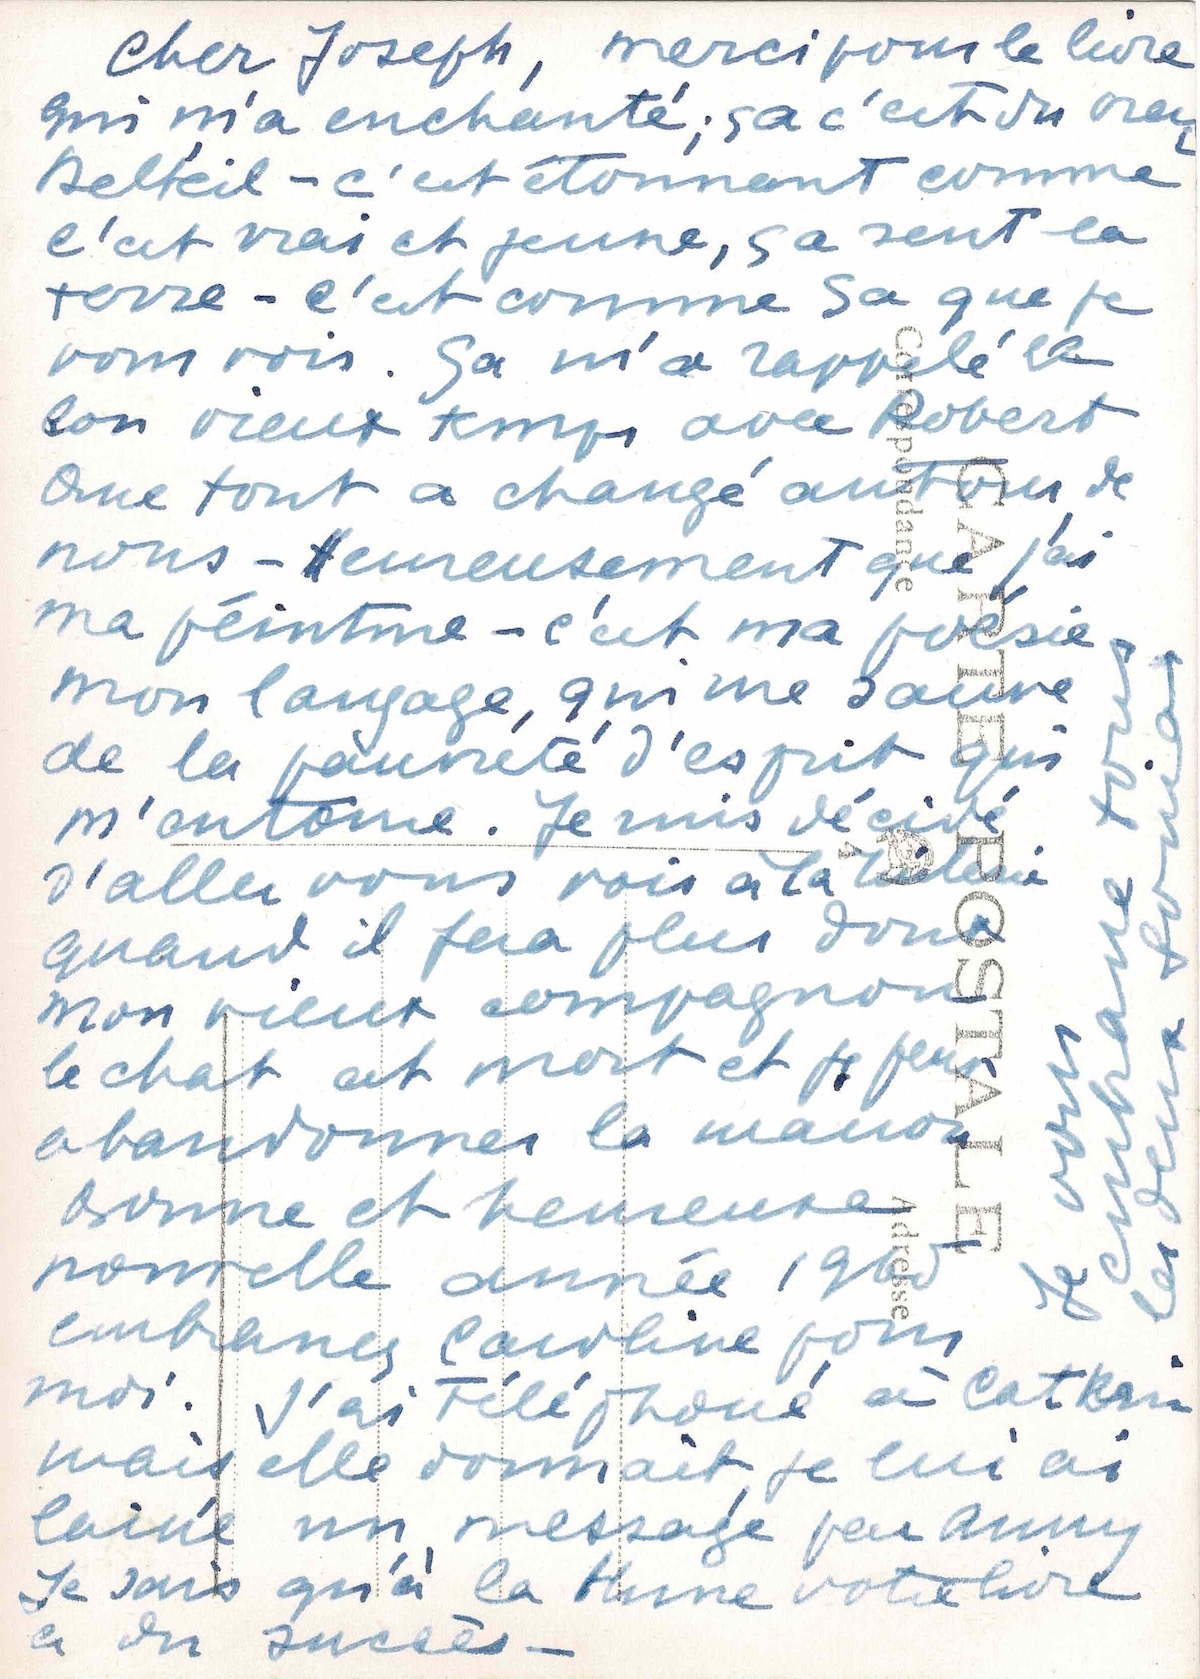 Cher Joseph, merci pour le livre
qui m'a enchanté; ça c'est du vrai
Delteil - c'est étonnant comme
c'est vrai et jeune, ça sent la
terre - c'est comme ça que je
vous vois. Ça m'a rappelé le
bon vieux temps avec Robert
Que tout a changé autour de
nous - Heureusement que j'ai
ma peinture - c'est ma poésie
mon langage, qui me sauve
de la pauvreté d'esprit qui
m'entoure. Je suis décidé
d'aller vous voir à la Tuilerie
quand il fera plus doux
Mon vieux compagnon
le chat est mort et je peux
abandonner la maison
Bonne et heureuse
nouvelle année 1965
embrassez Caroline pour
moi. J'ai téléphoné à
mais elle dormait, je lui ai
laissé un message par Anny
Je sais qu'à la Hune votre livre
a du succès -
Je vous
embrasse tous
les deux Sonia
CARTE POSTALE
Correspondance
Adresse
4